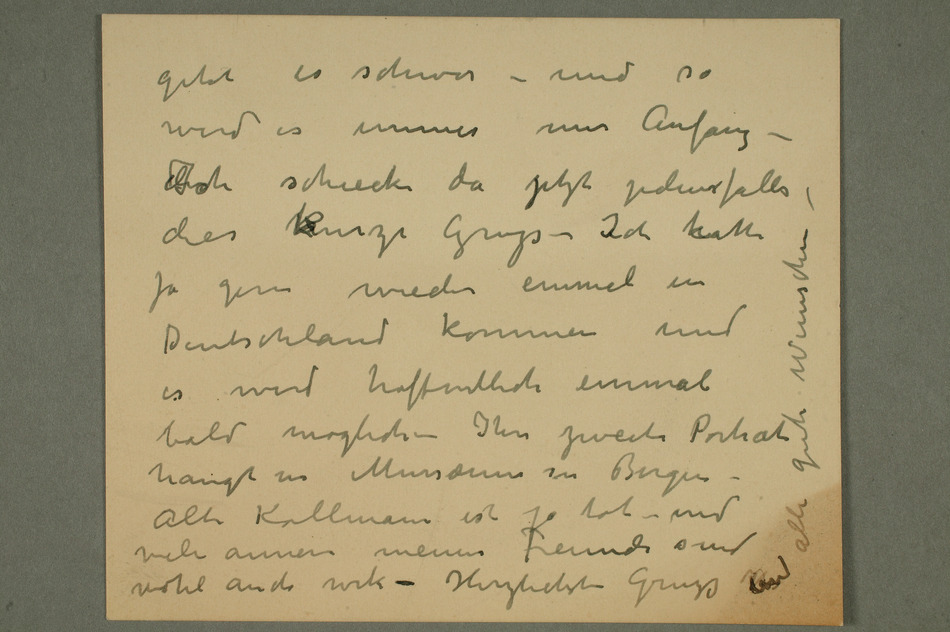 geht es schwer – und so
wird es immer nur Anfang –
Ich schicke da jetzt jedenfalls,
dies kurze Gruss – Ich hatte
ja gern wieder einmal in
Deutschland kommen und
es wird hoffentlich einmal
bald moglich – Ihr zweite Portrait
hangt im Museum in Bergen –
Alte Kollmann ist ja tot – und
viele annere meiner Freunde sind
wohl auch – Herzlichste Gruss und
alle gute Wunschen